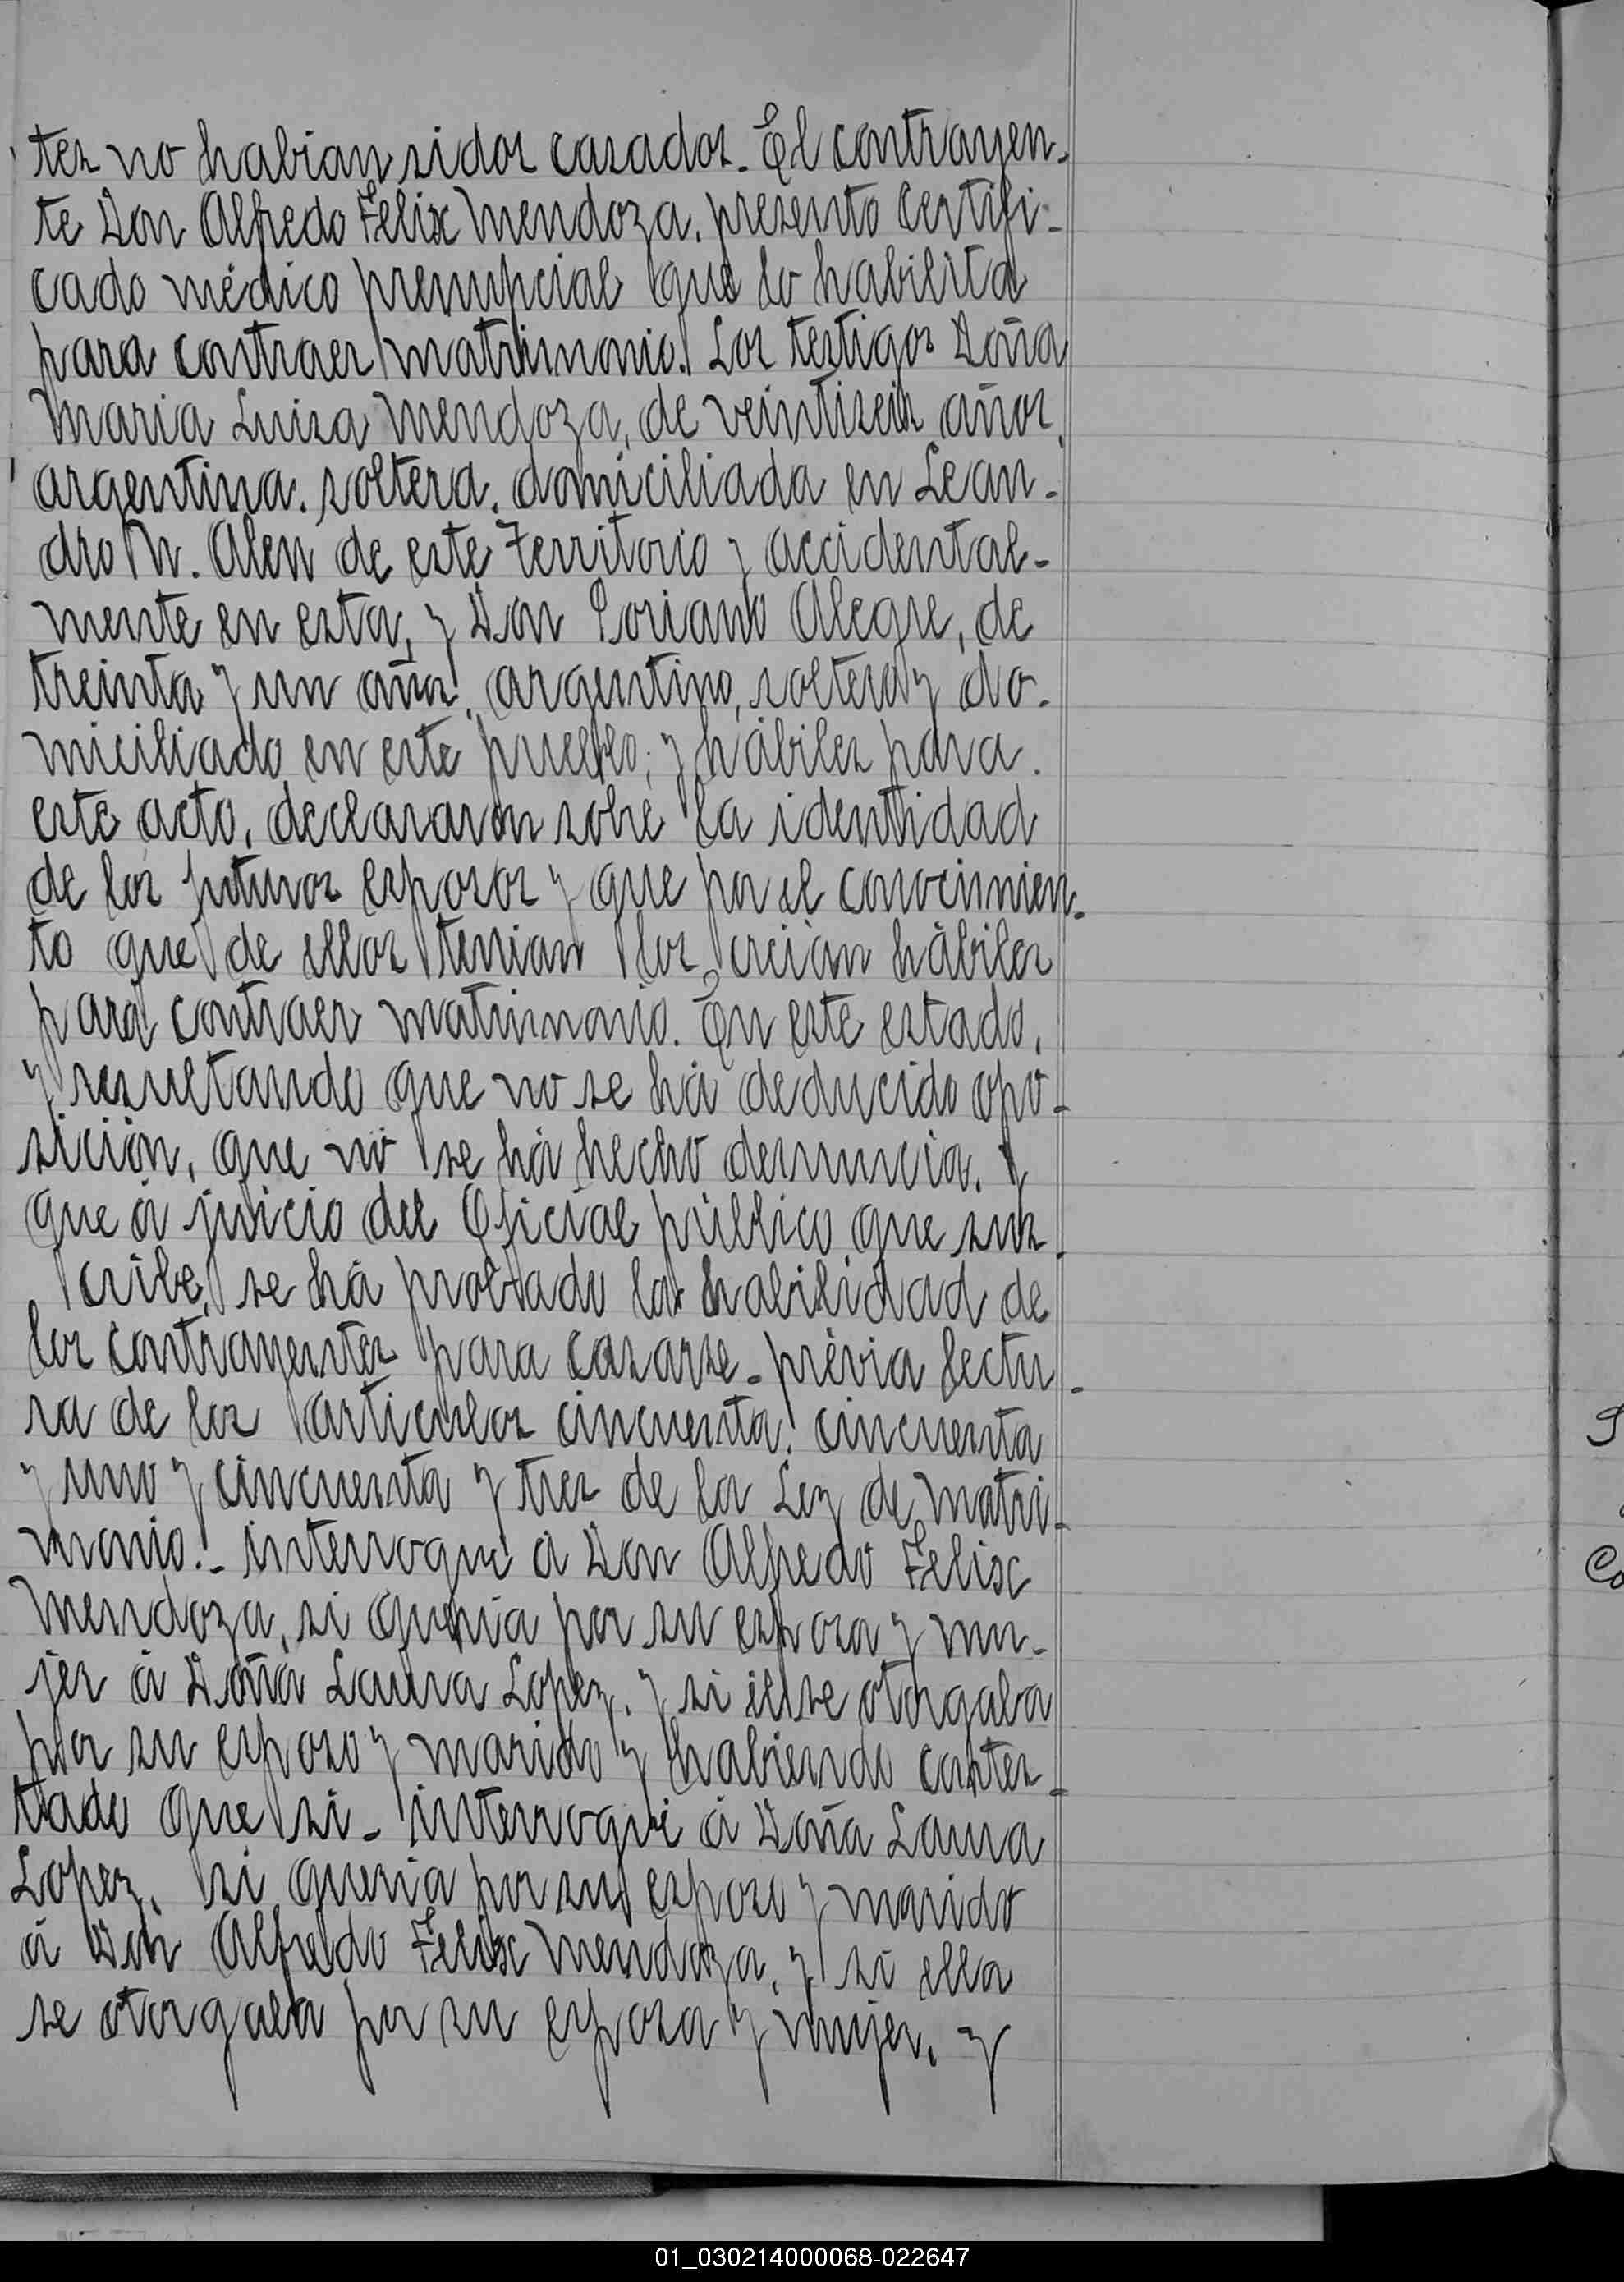 tes no habian sidos casados. El contrayen-
te Don Alfredo Felix Mendoza, presentó certifi-
cado médico prenupcial que lo habilita
para contraer matrimonio. Los testigos Doña
Maria Luisa Mendoza, de veintiseis años,
argentina, soltera, domiciliada en Lean-
dro N. Alen de este Territorio y accidental-
mente en esta, y Don Alegre, de
treinta y un años, argentino, soltero y do-
miciliado en este pueblo; y hábiles para
este acto, declararon sobre la identidad
de los futuros esposos y que por el conocimien-
to que de ellos tenian los creian hábiles
para contraer matrimonio. En este estado,
y resultando que no se há deducido opo-
sición, que no se há hecho denuncia, y
que á juicio del Oficial público que sus-
cribe, se há probado la habilidad de
los contrayentes para casarse - prévia lectu-
ra de los articulos cincuenta, cincuenta
y uno y cincuenta y tres de la Ley de Matri-
monio.- interrogué á Don Alfredo Felix
Mendoza, si queria por su esposa y mu-
jer á Doña Laura Lopez, y si él se otorgaba
por su esposo y marido y habiendo contes-
tado que si - interrogué á Doña Laura
Lopez, si queria por su esposo y marido
á Don Alfredo Felix Mendoza, y si ella
se otorgaba por su esposa y mujer, y
Co
01_030214000068-022647